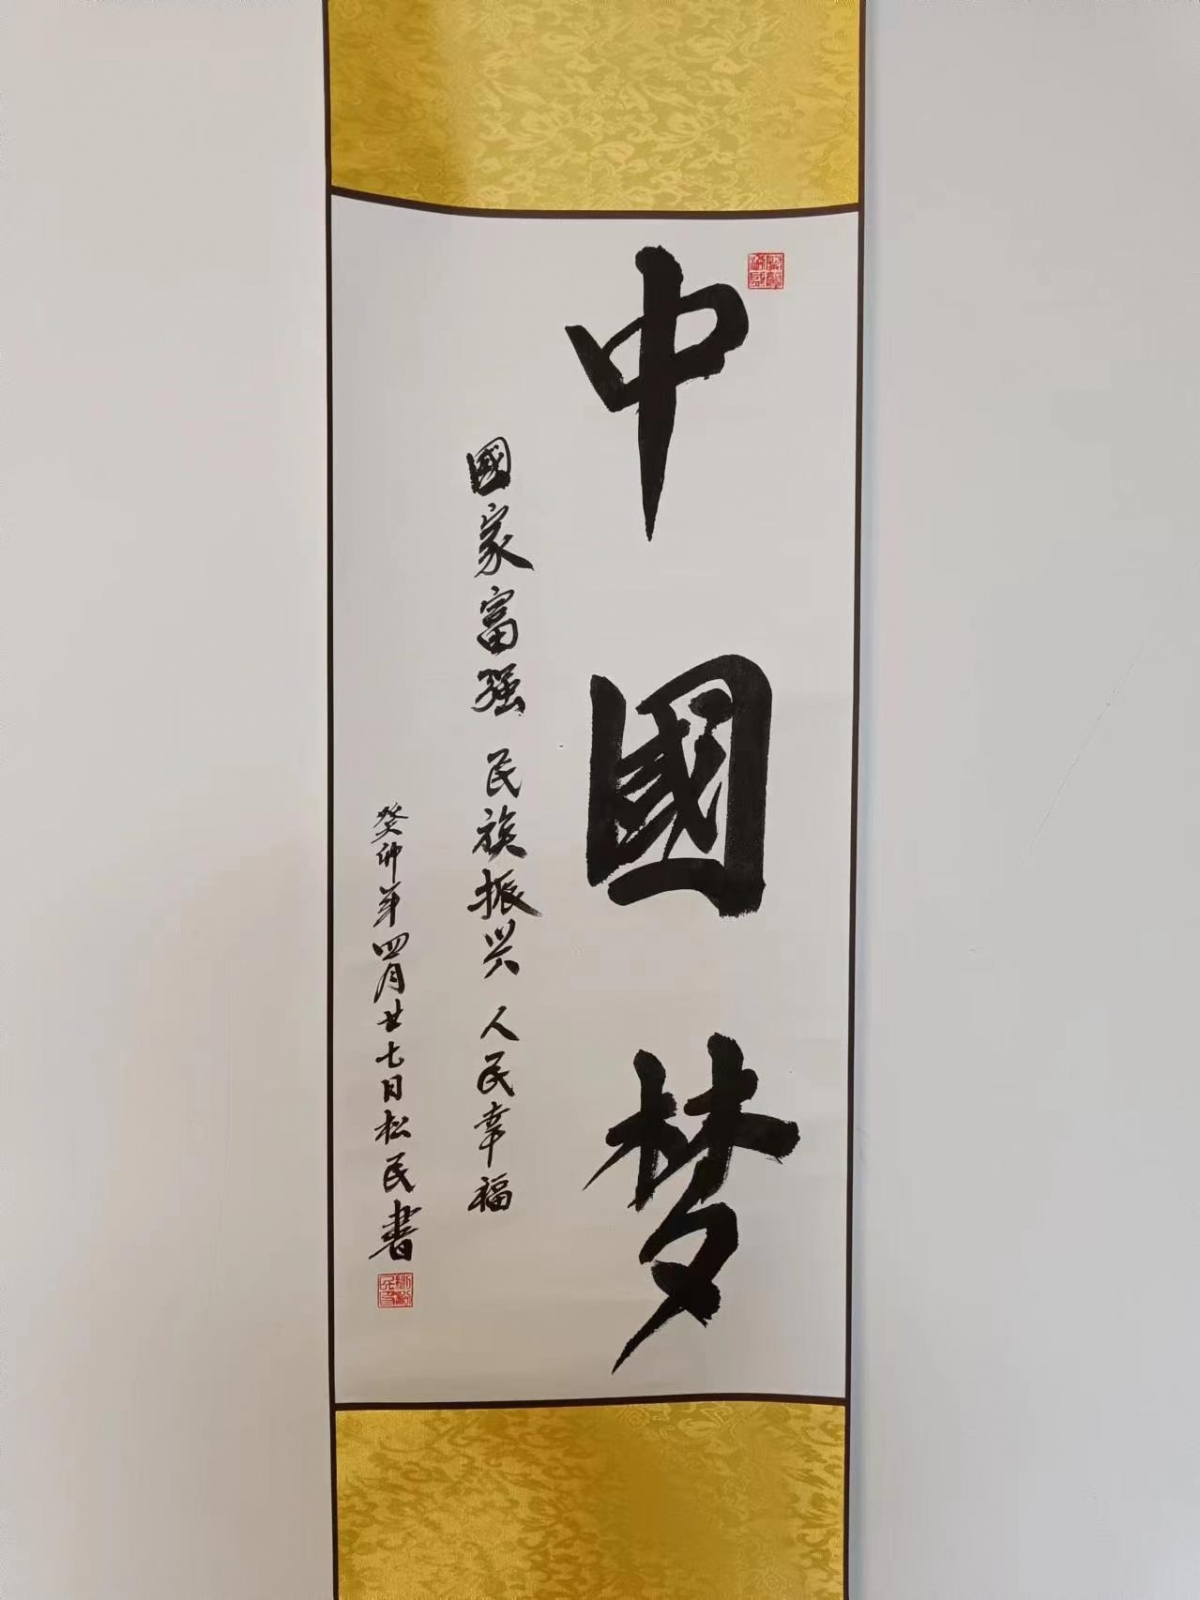 中國梦
國家富强 民族振兴 人民幸福
癸卯年四月廿七日松民書